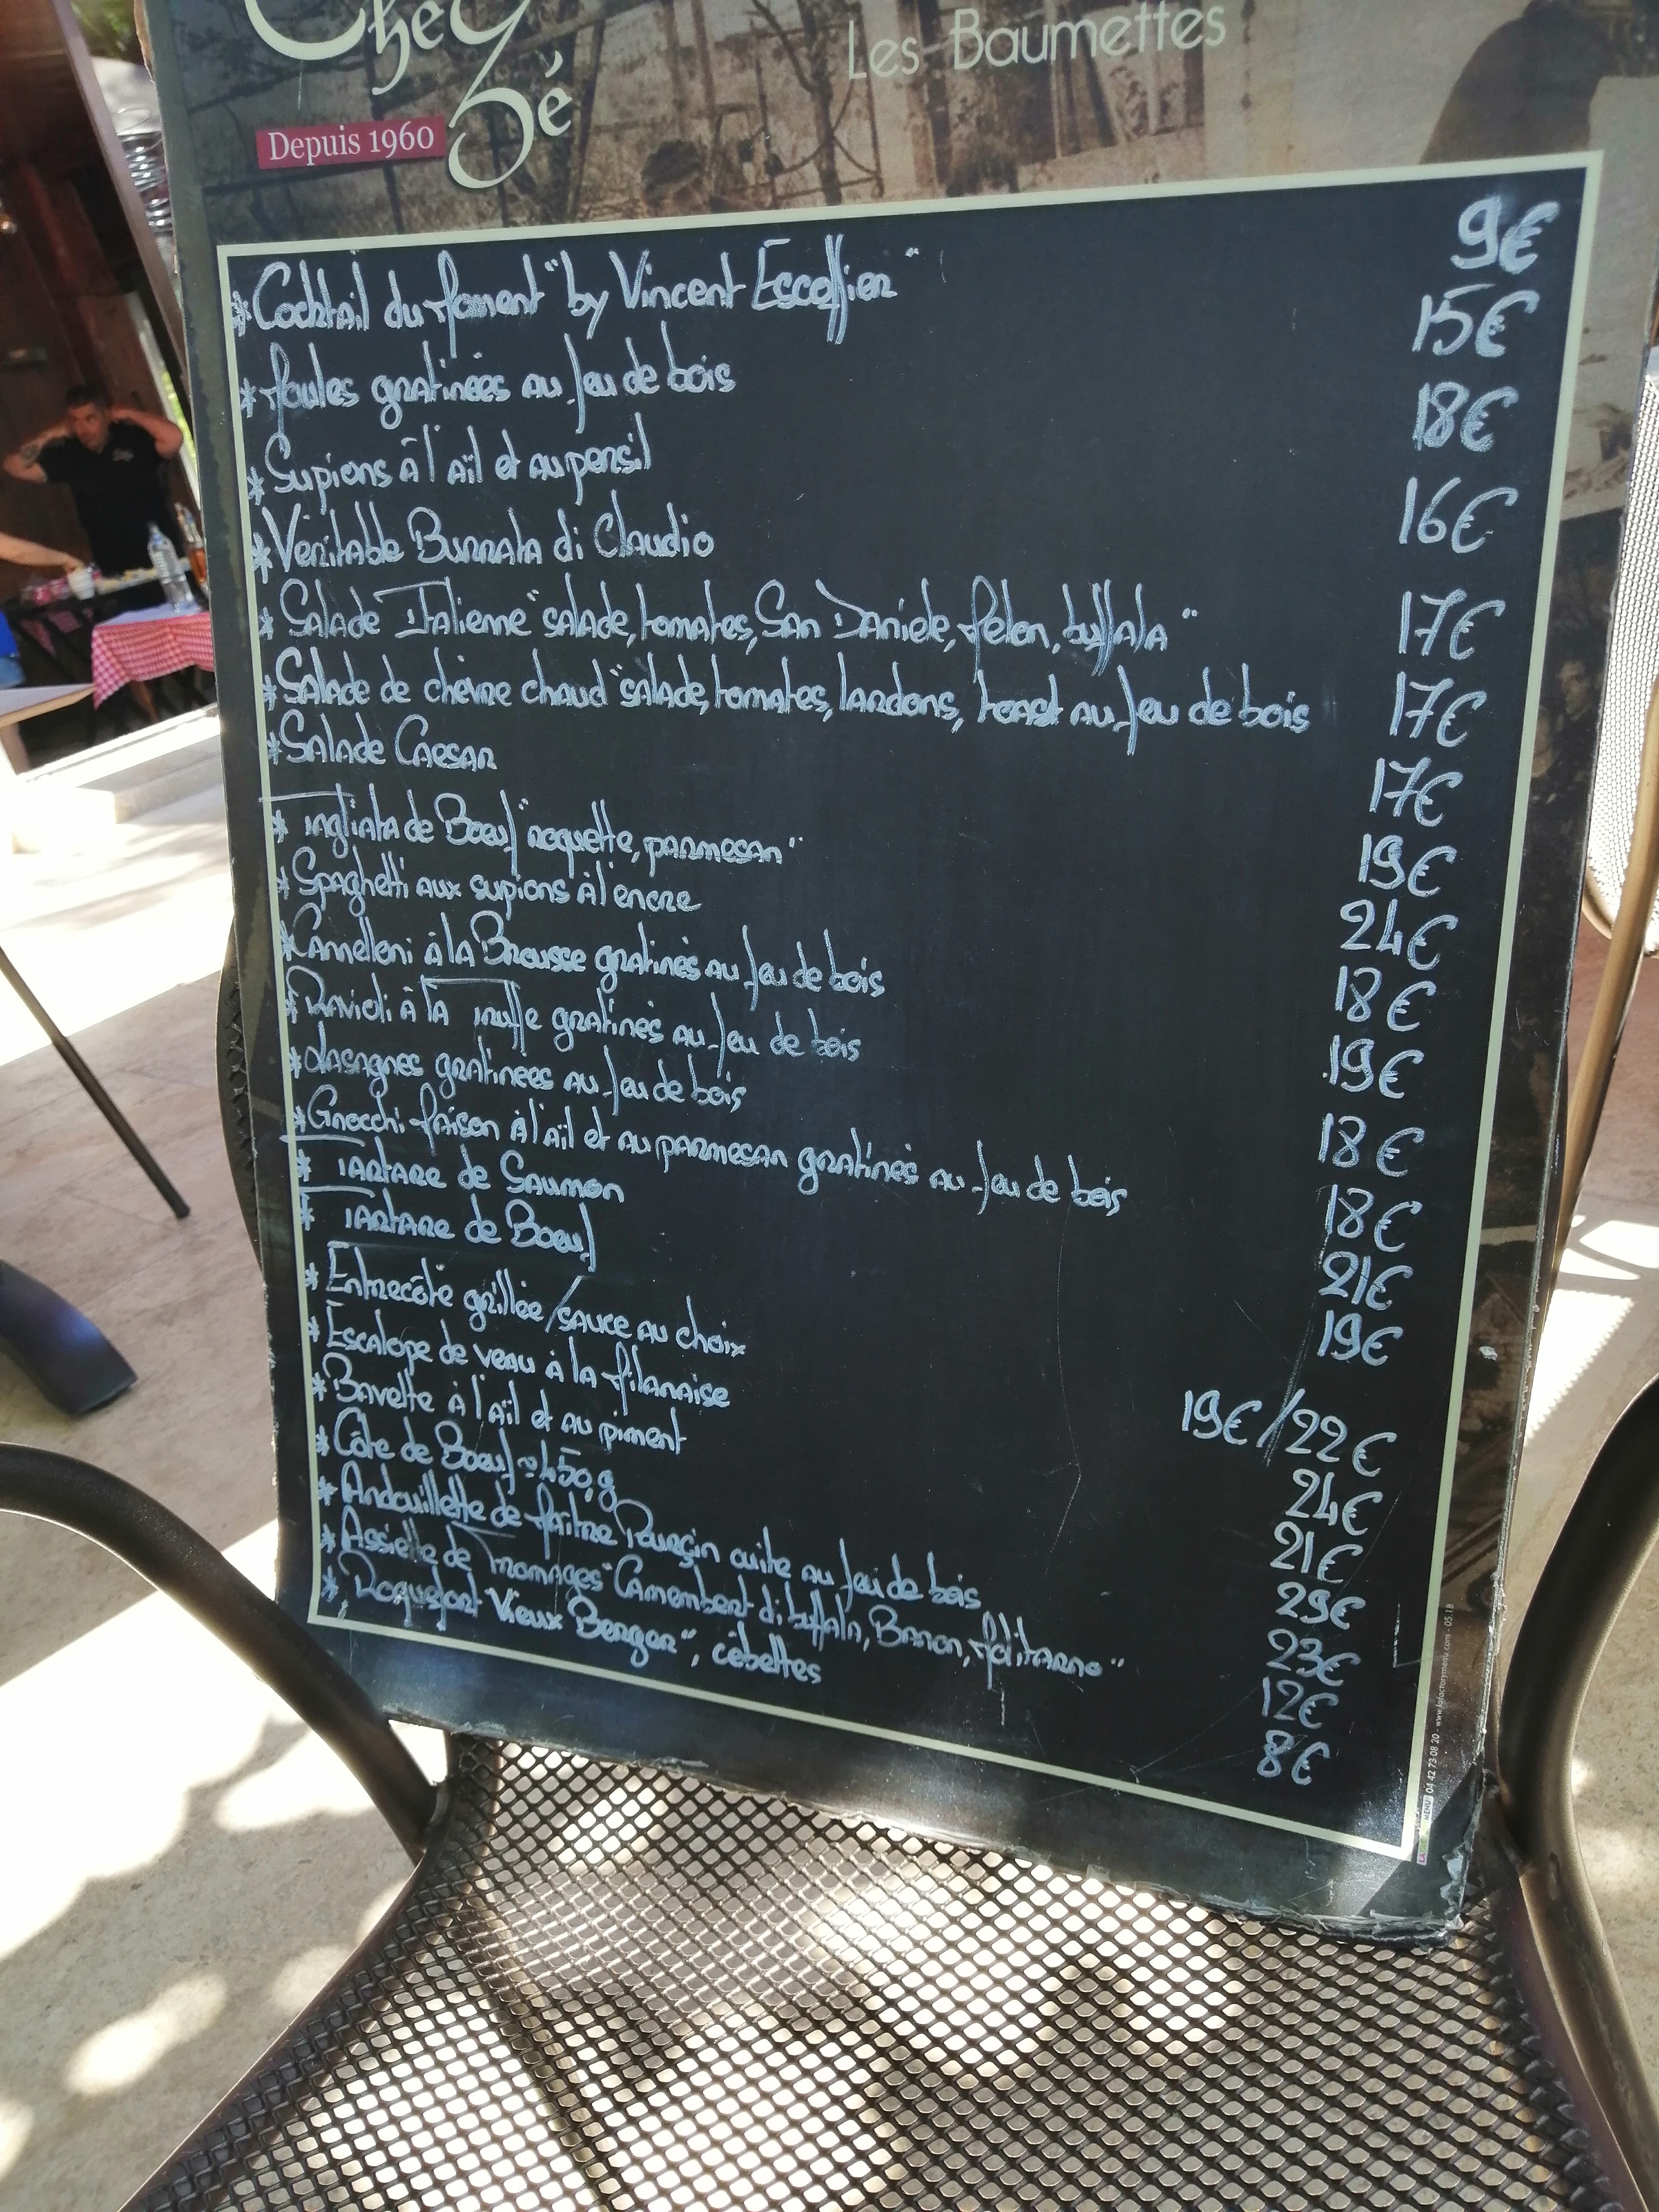 Chez Zé
Les Baumettes
Depuis 1960
* Cocktail du Moment "by Vincent Escoffier" 9€
* Moules gratinées au feu de bois 15€
* Supions à l'aïl et au persil 18€
* Véritable Burrata di Claudio 16€
* Salade Italienne "salade, tomates, San Daniele, Melon, buffala" 17€
* Salade de chèvre chaud "salade, tomates, lardons, toast au feu de bois 17€
* Salade Caesar 17€
* Tagliata de Boeuf "roquette, parmesan" 19€
* Spaghetti aux supions à l'encre 24€
* Canneloni à la Brousse gratinés au feu de bois 18€
* Ravioli à la Truffe gratinés au feu de bois 19€
* Lasagnes gratinées au feu de bois 18€
* Gnocchi Maison à l'aïl et au parmesan gratinés au feu de bois 18€
* Tartare de Saumon 21€
* Tartare de Boeuf 19€
* Entrecôte grillée/sauce au choix 19€/22€
* Escalope de veau à la Milanaise 24€
* Bavette à l'aïl et au piment 21€
* Côte de Boeuf ~450g 29€
* Andouillette de Maître Pourçin cuite au feu de bois 23€
* Assiette de Fromages "Camembert di buffala, Banon, Politarno" 12€
* "Roquefort Vieux Berger", cébettes 8€
04 42 73 08 20 - www.lafactorymenu.com - 05.18